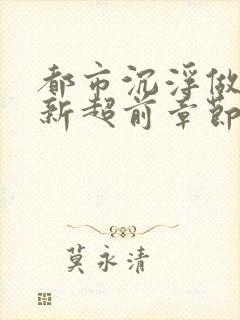 都市沉浮做
新超前章节
莫永清